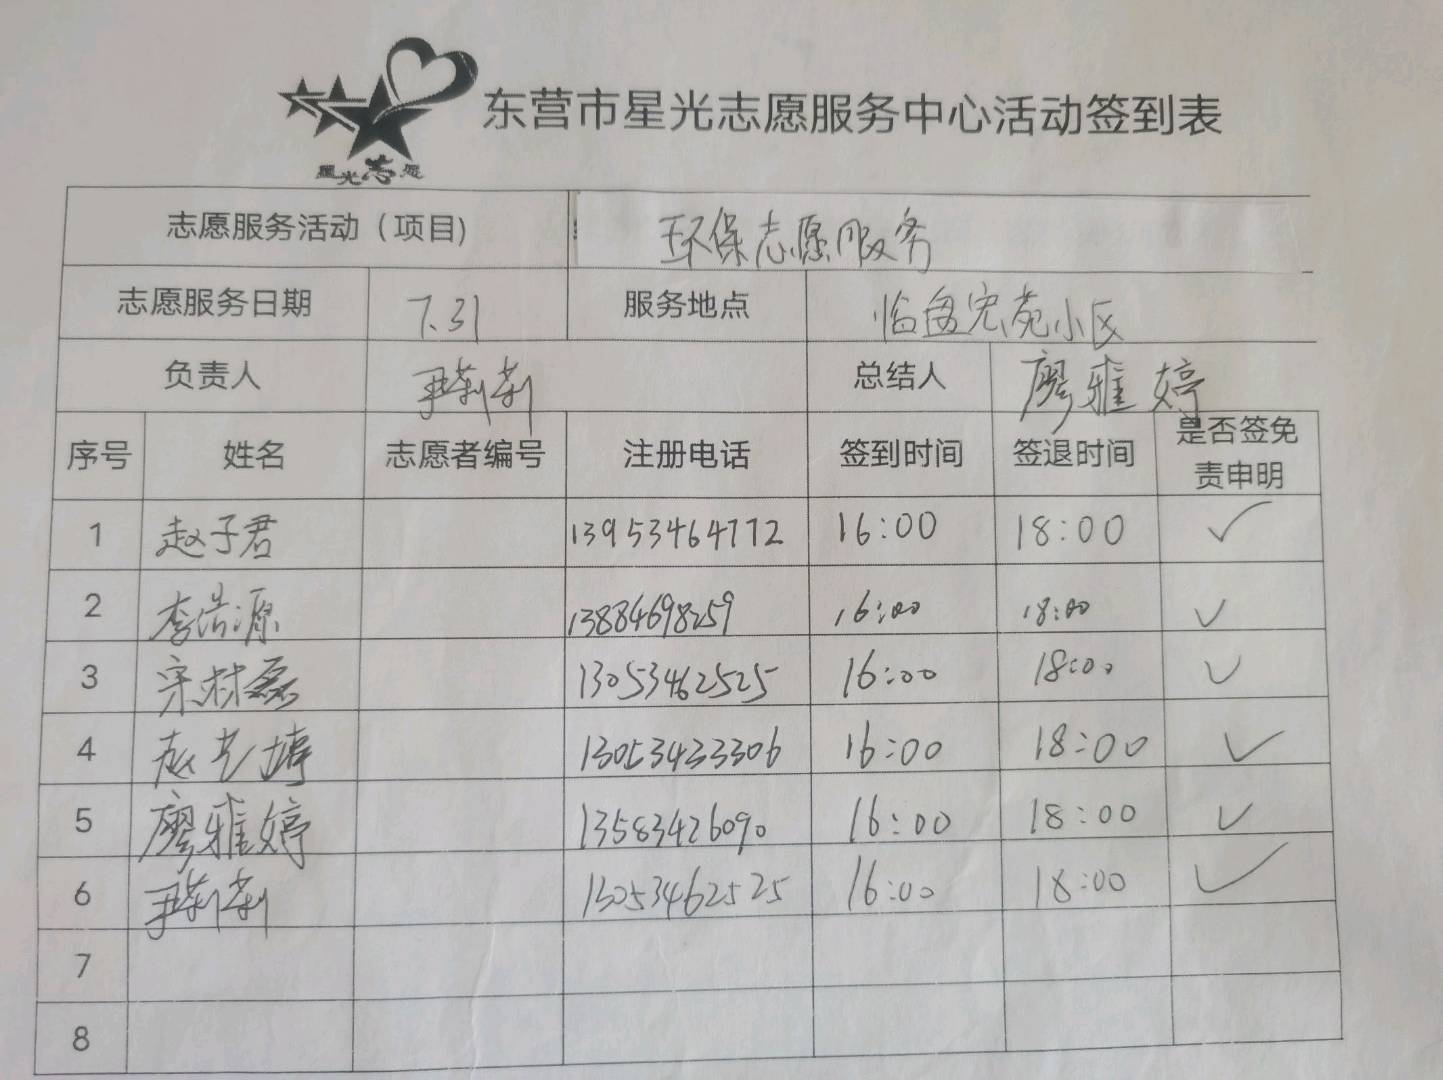 星光志愿
东营市星光志愿服务中心活动签到表
志愿服务活动（项目) 环保志愿服务
志愿服务日期 7.31 服务地点 临盘宏苑小区
负责人 尹莉莉 总结人 廖雅婷
序号 姓名 志愿者编号 注册电话 签到时间 签退时间 是否签免
责申明
1 赵子君 13953464772 16:00 18:00 ✓
2 李浩源 13884698259 16:00 18:00 ✓
3 宋林磊 13053462525 16:00 18:00 ✓
4 赵艺婷 13053433306 16:00 18:00 ✓
5 廖雅婷 13583426090 16:00 18:00 ✓
6 尹莉莉 13053462525 16:00 18:00 ✓
7
8